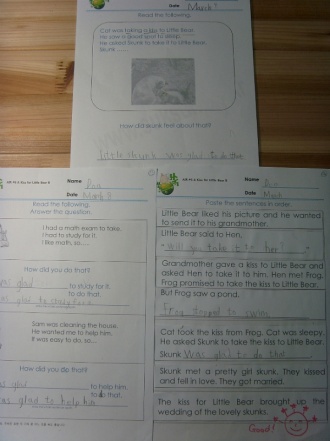 Date March
Read the following.
Cat was taking a kiss to Little Bear.
He saw a good spot to sleep.
He asked Skunk to take it to Little Bear.
Skunk ......
How did skunk feel about that?
little skunk was glad to do that
Name
Date March
Read the following.
Answer the question.
I had a math exam to take.
I had to study for it.
I like math, so.....
How did you do that?
was glad to study for it.
to do that.
was glad to
Sam was cleaning the house.
He wanted me to help him.
It was easy to do, so...
How did you do that?
was glad to help him
to do that.
was glad to help him
Name
Date March
Paste the sentences in order.
Little Bear liked his picture and he wanted to send it to his grandmother.
Little Bear said to Hen,
"Will you take it to her?"
Grandmother gave a kiss to Little Bear and
asked Hen to take it to him. Hen met Frog.
Frog promised to take the kiss to Little Bear.
But Frog saw a pond.
Frog stopped to swim
Cat took the kiss from Frog. Cat was sleepy.
He asked Skunk to take the kiss to Little Bear.
Skunk was glad to do that.
Skunk met a pretty girl skunk. They kissed
and fell in love. They got married.
The kiss for Little Bear brought up the
wedding of the lovely skunks.
Good!